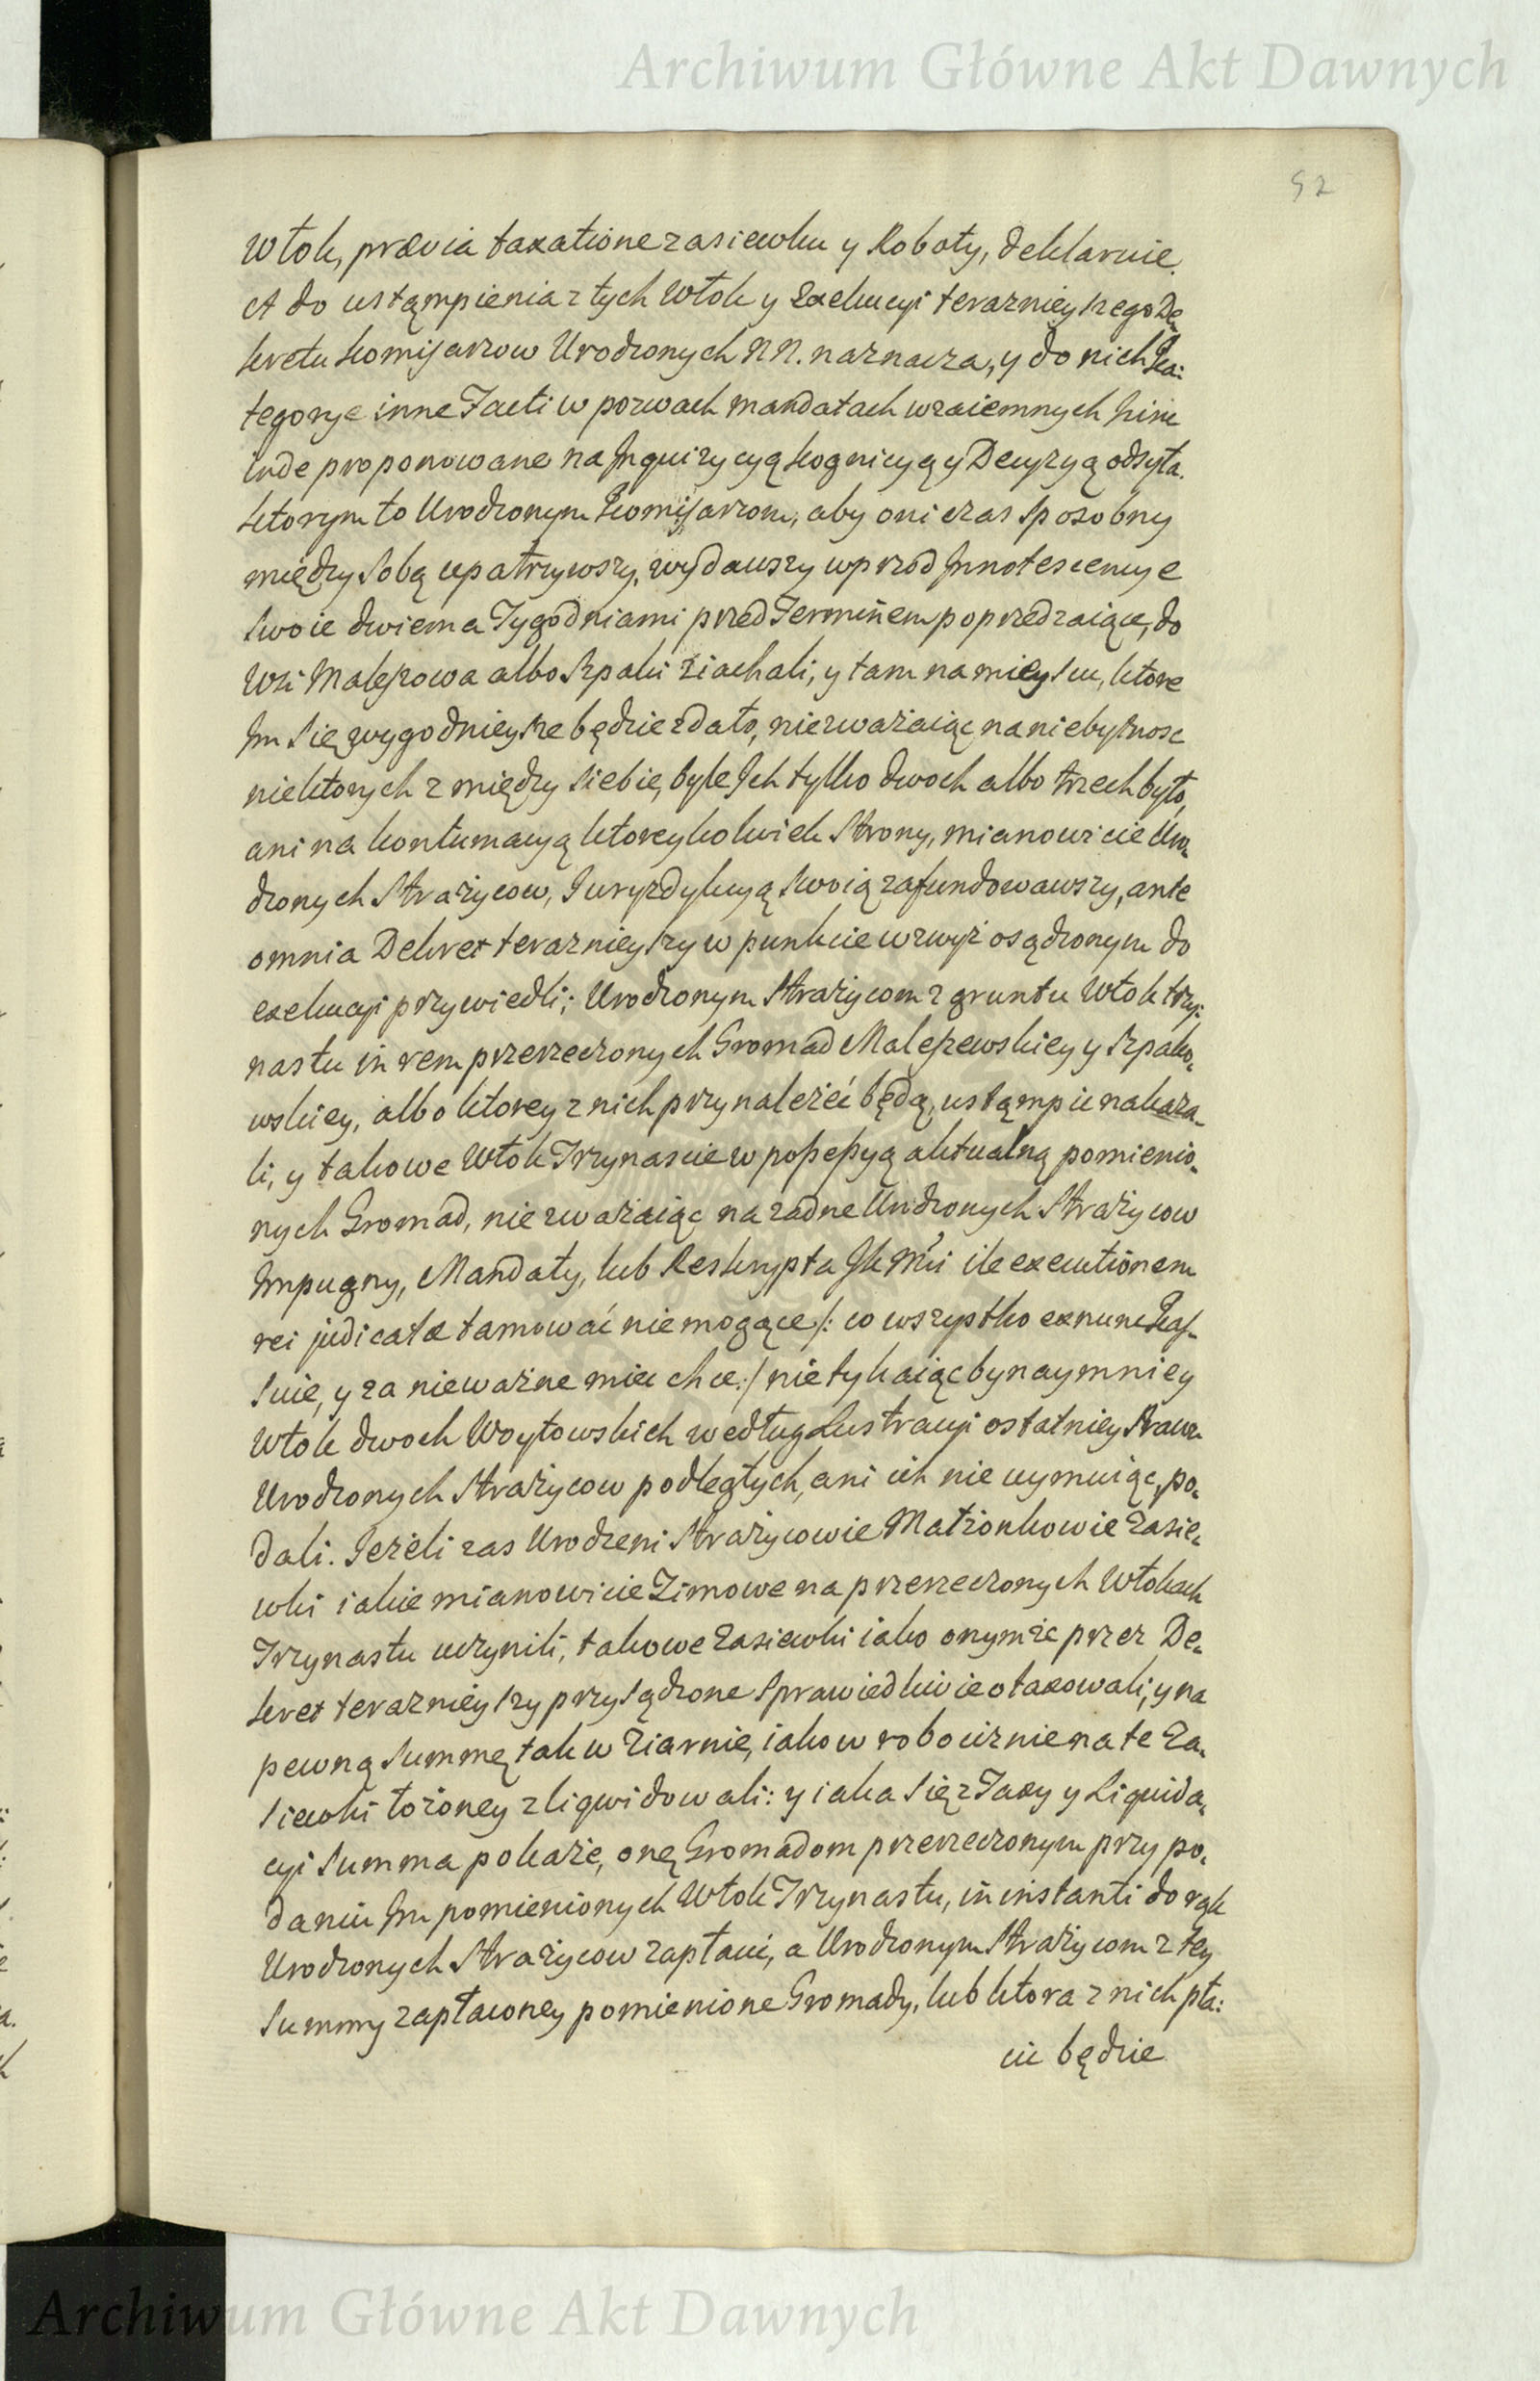 Archiwum Główne Akt Dawnych
52
Włok, prævia taxatione zasiewku y Roboty, deklaruie.
A do ustąmpienia z tych Włok y Exekucyi teraznieyszego De„
kretu Komisarzow Urodzonych NN. naznacza, y do nich Ka:
tegorye inne Facti w pozwach mandatach wzaiemnych hinc
inde proponowane na Inquizycyą Kognicyą y Decyzyą odsyła.
Ktorym to Urodzonym Komisarzom, aby oni czas sposobny
między sobą upatrzywszy, wydawszy wprzod Innotescencye
swoie dwiema Tygodniami przed Terminem poprzedzaiące, do
Wsi Maleszowa albo Szpaki ziachali, y tam na mieyscu, ktore
Im się wygodnieysze będzie zdało, niezważaiąc na niebytnosc
niektorych z między siebie, byle Ich tylko dwoch albo trzech było,
ani na kontumacyą ktoreykolwiek Strony, mianowicie Uro„
dzonych Strażycow, Juryzdykcyą swoią zafundowawszy, ante
omnia Dekret teraznieyszy w punkcie wzwyż osądzonym do
exekucyi przywiedli; Urodzonym Strażycom z gruntu Włok trzy:
nastu in rem przerzeczonych Gromad Maleszewskiey y Szpako„
wskiey, albo ktorey z nich przynależeć będą, ustąmpic nakaza„
li, y takowe Włok Trzynascie w possessyą aktualną pomienio„
nych Gromad, niezważaiąc na żadne Urodzonych Strażycow
Impugny, Mandaty, lub Reskrypta JK Mći ile executionem
rei judicatæ tamować niemogące /: co wszystko exnunc Kas„
suie, y za nieważne miec chce :/ nietykaiąc bynaymniey
Włok dwoch Woytowskich według Lustracyi ostatniey Prawu
Urodzonych Strażycow podległych, ani ich nie uymuiąc, po„
dali. Jeżeli zas Urodzeni Strażycowie Małżonkowie zasie„
wki iakie mianowicie Zimowe na przerzeczonych Włokach
Trzynastu uczynili, takowe zasiewki iako onymże przez De„
kret teraznieyszy przysądzone sprawiedliwie otaxowali, y na
pewną Summę tak w ziarnie, iako w robociznie na te za„
siewki łożoney zligwidowali: y iaka się z Taxy y Liquida„
cyi Summa pokaże, onę Gromadom przerzeczonym przy po„
daniu Im pomienionych Włok Trzynastu, in instanti do rąk
Urodzonych Strażycow zapłacić, a Urodzonym Strażycom z tey
Summy zapłaconey pomienione Gromady, lub ktora z nich pła:
cic będzie
Archiwum Główne Akt Dawnych